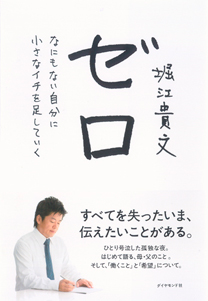 ゼロ
堀江貴文
なにもない自分に
小さなイチを足していく
すべてを失ったいま、
伝えたいことがある。
ひとり号泣した孤独な夜。
はじめて語る、母・父のこと。
そして、「働くこと」と「希望」について。
ダイヤモンド社